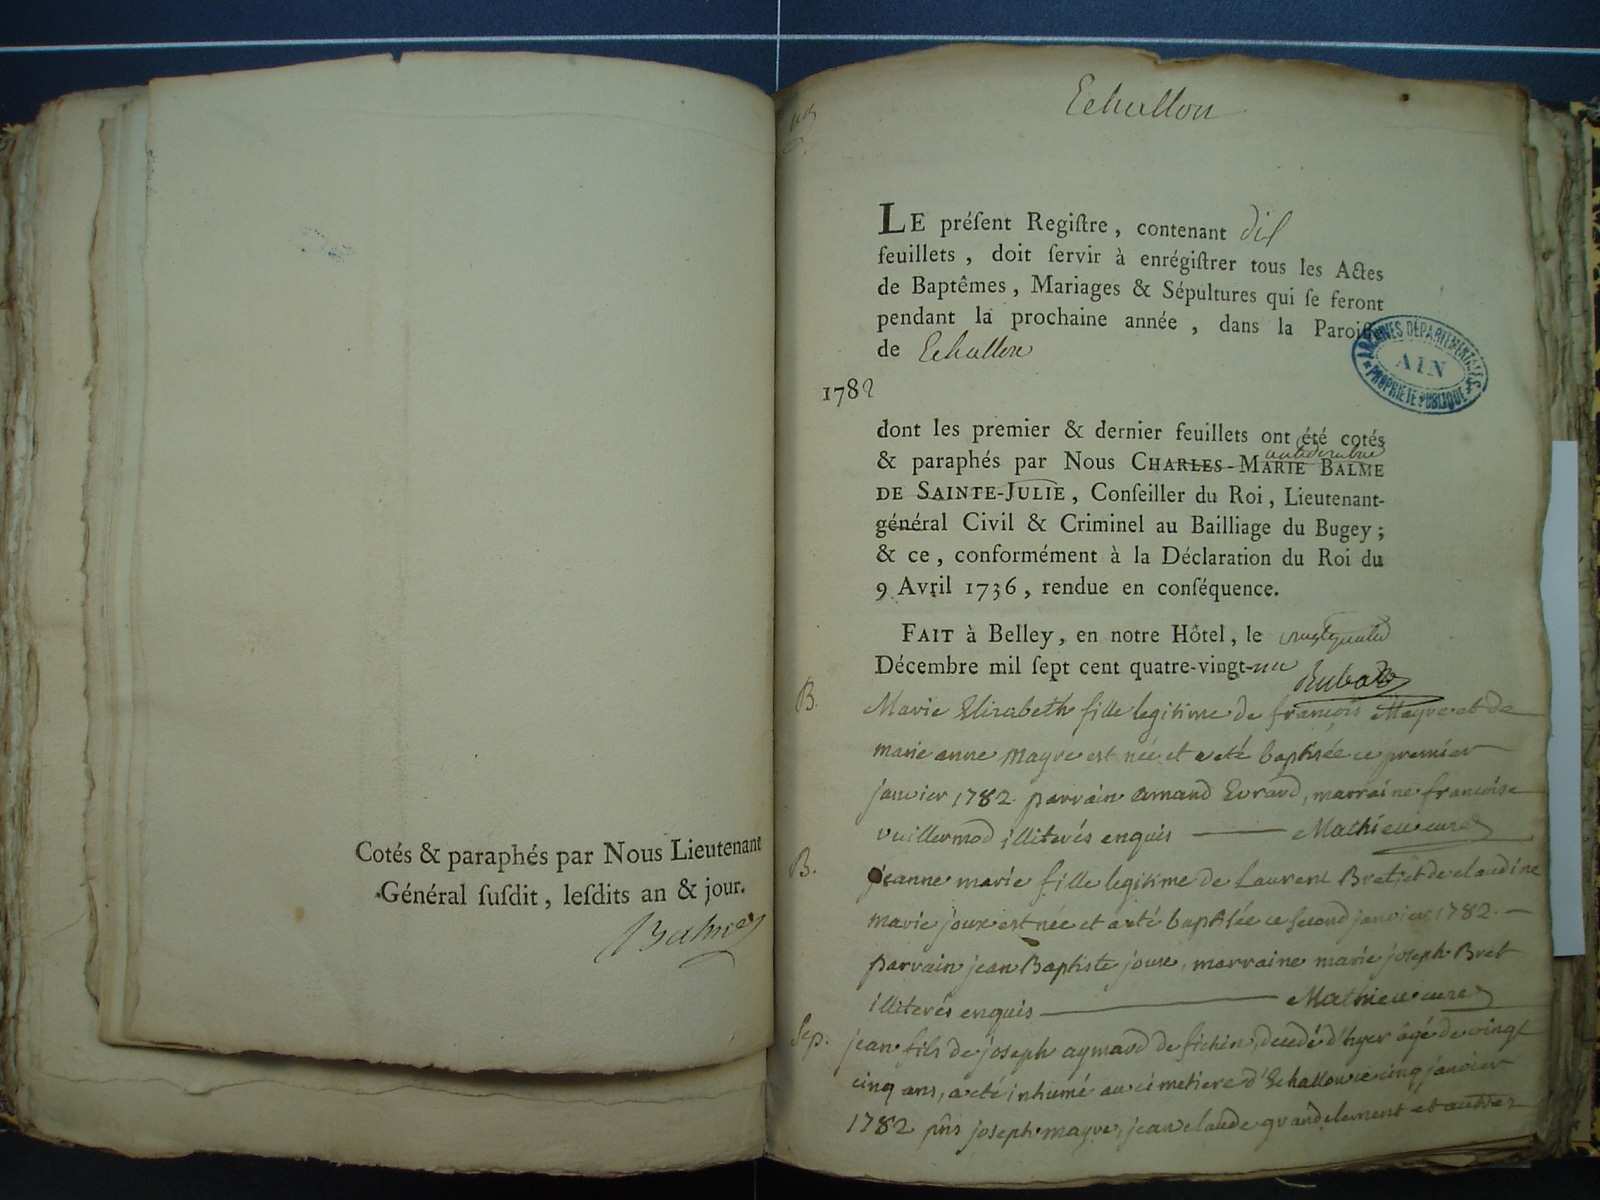 Cotés & paraphés par Nous Lieutenant
Général ſuſdit, leſdits an & jour.
Balme
Echallon
LE préſent Regiſtre, contenant dix
feuillets, doit ſervir à enrégiſtrer tous les Actes
de Baptêmes, Mariages & Sépultures qui ſe feront
pendant la prochaine année, dans la Paroiſſe
de Echallon
ARCHIVES DÉPARTEMENTALES
AIN
PROPRIÉTÉ PUBLIQUE
1782
dont les premier & dernier feuillets ont été cotés
& paraphés par Nous CHARLES-MARIE BALME
DE SAINTE-JULIE, Conſeiller du Roi, Lieutenant-
général Civil & Criminel au Bailliage du Bugey;
& ce, conformément à la Déclaration du Roi du
9 Avril 1736, rendue en conſéquence.
FAIT à Belley, en notre Hôtel, le vingtquatre
Décembre mil ſept cent quatre-vingt-un
B. Marie Elizabeth fille legitime de françois Mayre et de
marie anne Mayre est née et a eté baptisée ce premier
janvier 1782 parrain amand Evrard, marraine francoise
vuillermod illiterés enquis Mathieu curé
B. jeanne marie fille legitime de Laurent Bret, et de claudine
marie joux est née et a eté baptisée ce second janvier 1782.
parrain jean Baptiste joux, marraine marie joseph Bret
illiterés enquis Mathieu curé
Sep. jean fils de joseph aymard de decedé d'hyer âgé de vingt
cinq ans, a eté inhumé au cimetiere d'Echallon ce cinq janvier
1782 pñs joseph mayre, jean claude grandclement et autres